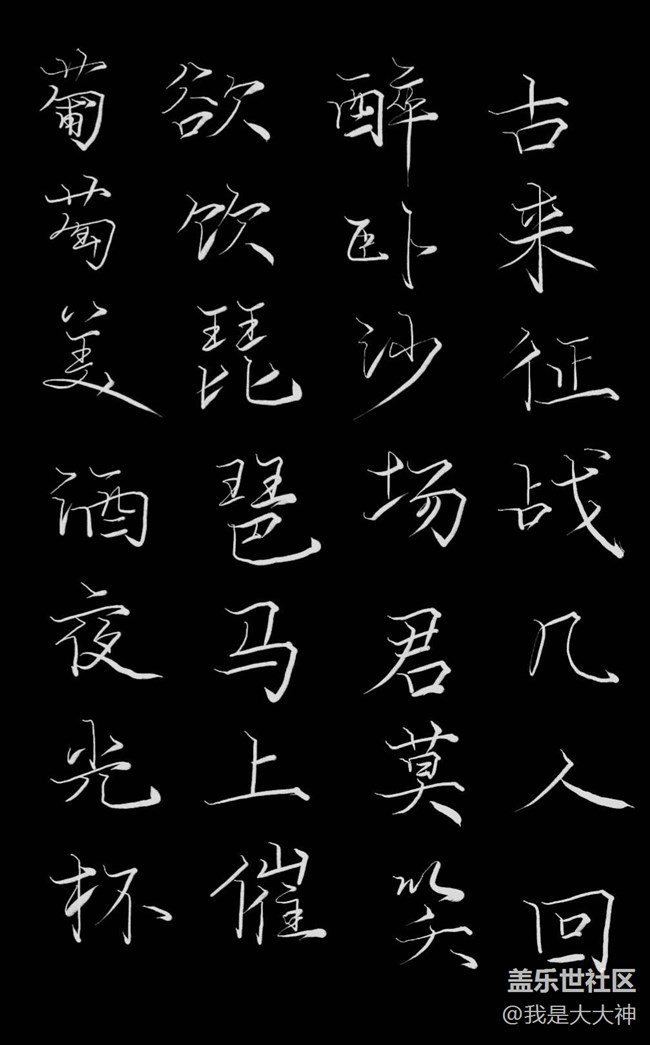 葡萄美酒夜光杯
欲饮琵琶马上催
醉卧沙场君莫笑
古来征战几人回
盖乐世社区
@我是大大神